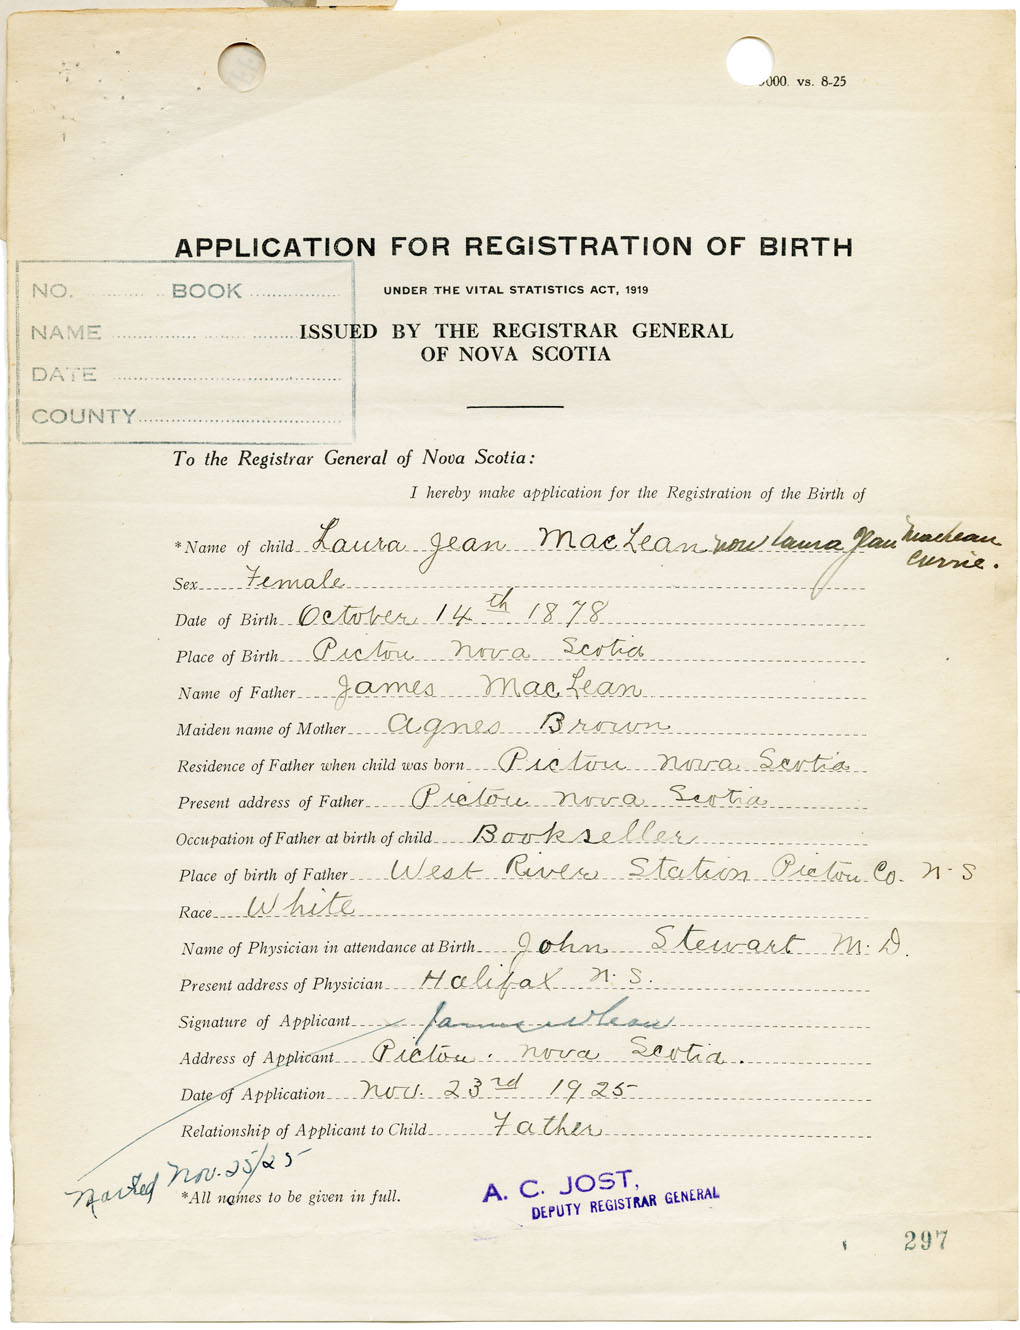 000. vs. 8-25
APPLICATION FOR REGISTRATION OF BIRTH
UNDER THE VITAL STATISTICS ACT, 1919
ISSUED BY THE REGISTRAR GENERAL
OF NOVA SCOTIA
NO. BOOK
NAME
DATE
COUNTY
To the Registrar General of Nova Scotia:
I hereby make application for the Registration of the Birth of
*Name of child Laura Jean MacLean now Laura Jean MacLean
Currie.
Sex Female
Date of Birth October 14th 1878
Place of Birth Pictou Nova Scotia
Name of Father James MacLean
Maiden name of Mother Agnes Brown
Residence of Father when child was born Pictou Nova Scotia
Present address of Father Pictou Nova Scotia
Occupation of Father at birth of child Bookseller
Place of birth of Father West River Station Pictou Co. N.S
Race White
Name of Physician in attendance at Birth John Stewart M.D.
Present address of Physician Halifax N.S.
Signature of Applicant James McLean
Address of Applicant Pictou. Nova Scotia.
Date of Application Nov. 23rd 1925
Relationship of Applicant to Child Father
Nov. 25/25
*All names to be given in full.
A. C. JOST,
DEPUTY REGISTRAR GENERAL
297